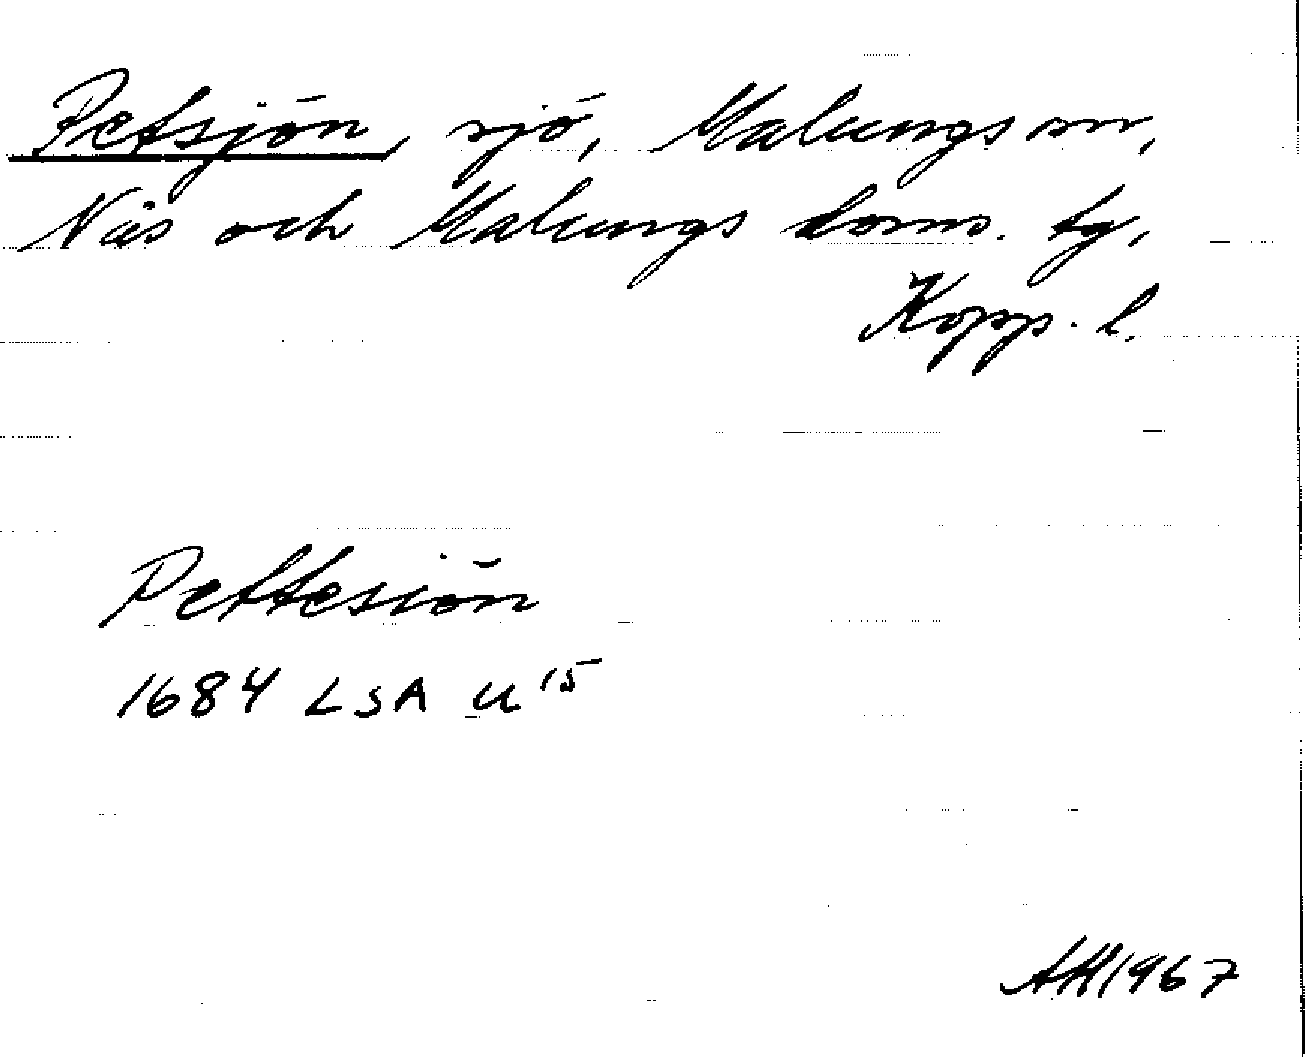 Petsjön, sjö, Malungs sn,
Nås och Malungs doms. tg,
Kopp. l.
Pettesiön
1684 LSA U 15
AH 1967